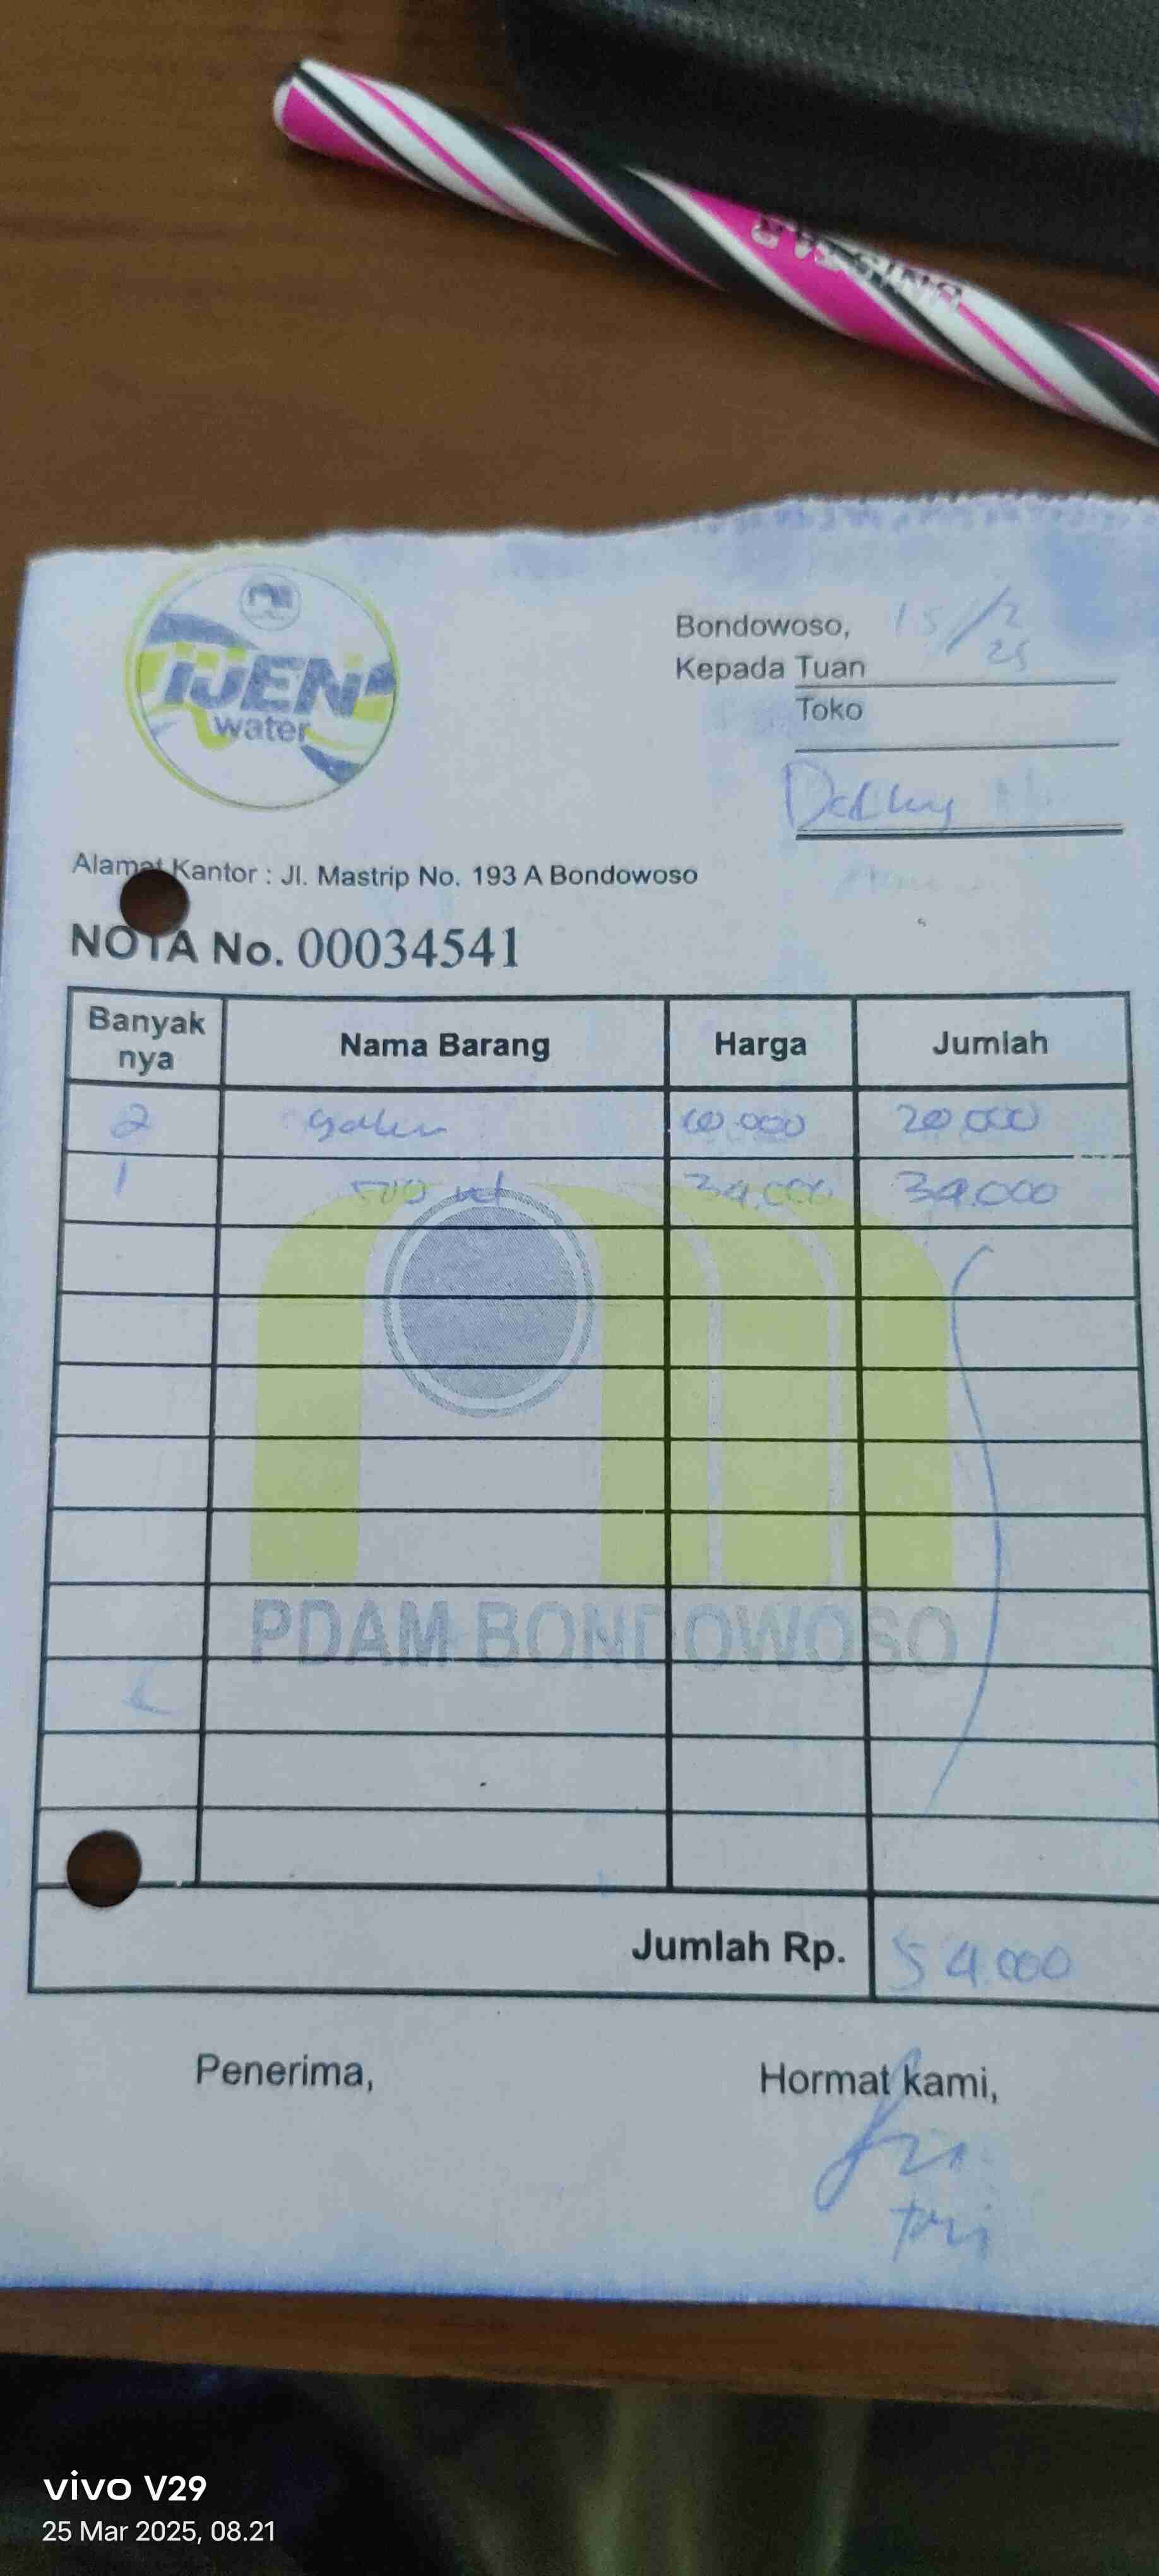 UNISTAR
IJEN
water
Bondowoso, 15/2
25
Kepada Tuan
Toko
Alamat Kantor : Jl. Mastrip No. 193 A Bondowoso
NOTA No. 00034541
Banyak nya Nama Barang Harga Jumlah
2 galon 10.000 20.000
1 500 ml 34.000 34.000
PDAM BONDOWOSO
Jumlah Rp. 54.000
Penerima, Hormat kami,
tri
vivo V29
25 Mar 2025, 08.21